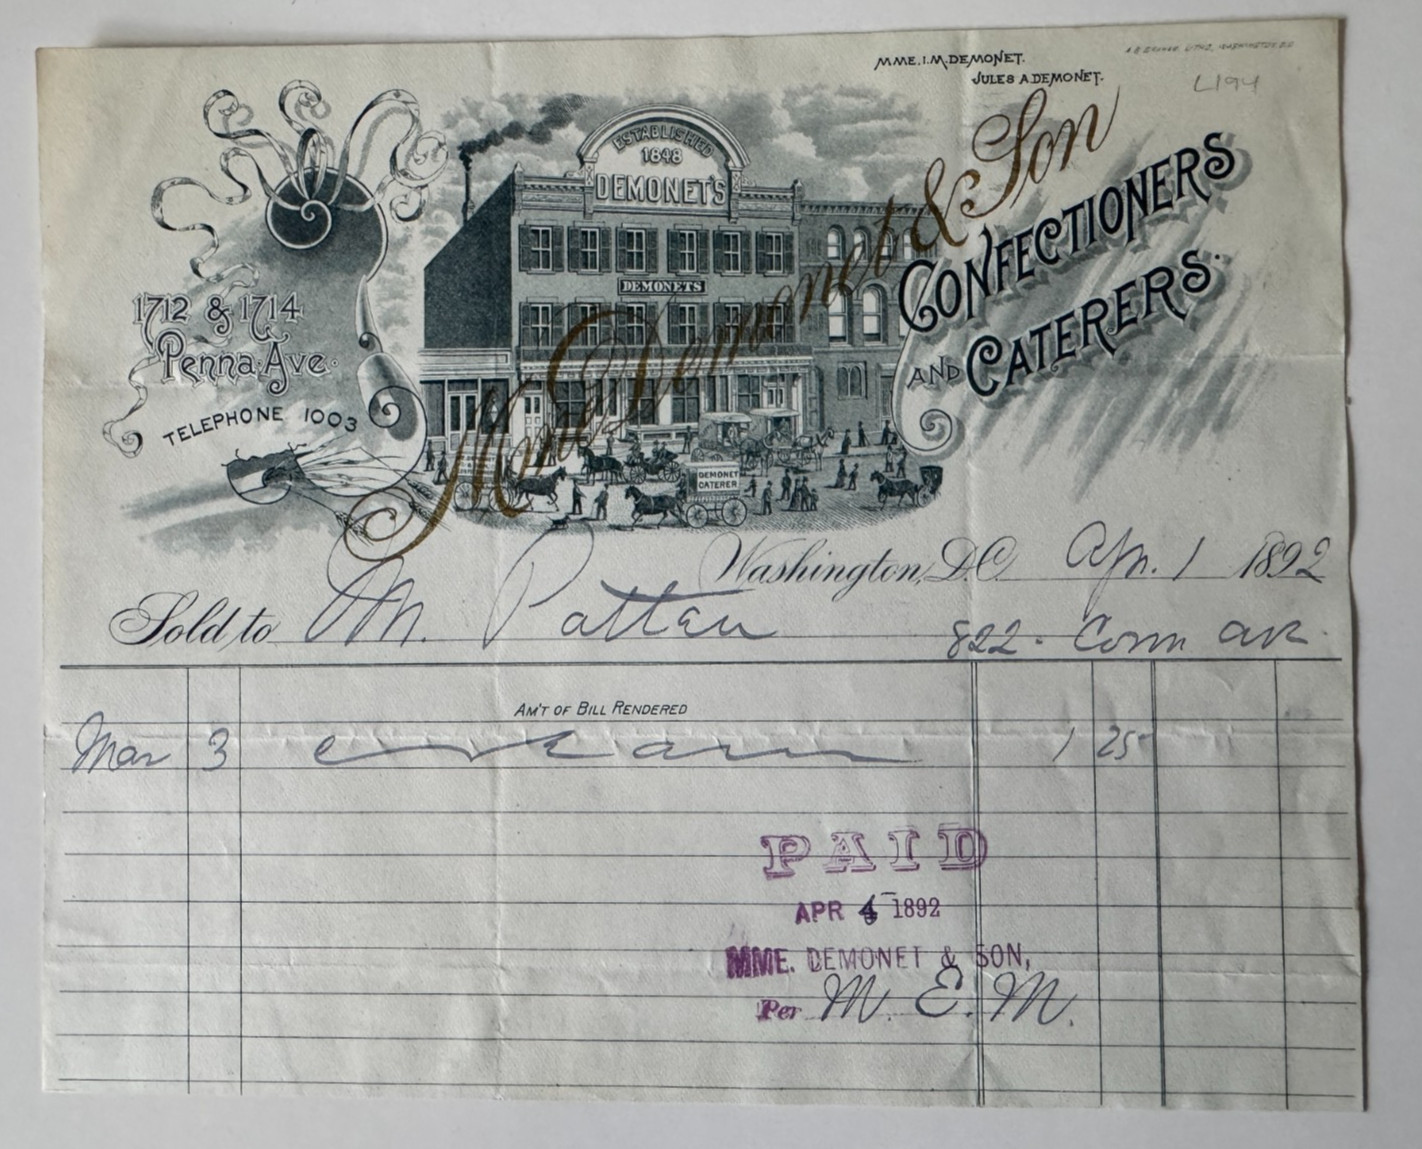 MME. I. M. DEMONET.
JULES A. DEMONET.
L194
ESTABLISHED
1848
DEMONET'S
DEMONETS
Mme Demonet & Son
CONFECTIONERS
AND CATERERS.
1712 & 1714
Penna. Ave.
TELEPHONE 1003
DEMONET
CATERER
Washington, D.C. Apr. 1 1892
Sold to M. Patten
822 Conn ave
AM'T OF BILL RENDERED
Mar 3 1 25
PAID
APR 4 1892
MME. DEMONET & SON,
Per M. E. M.